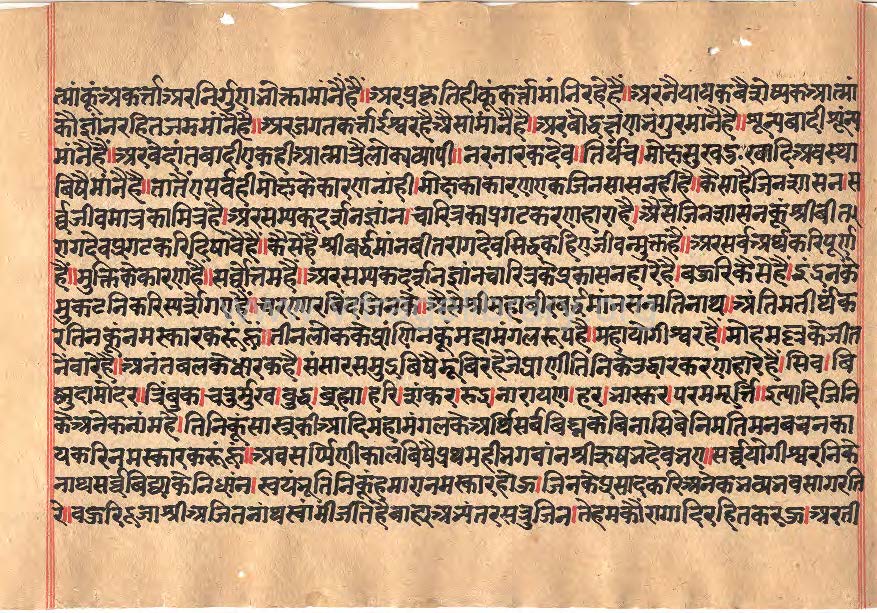 त्मांकूं अकर्त्ता अर निर्गुण भोक्ता मांनैं हैं॥ अर प्रकृति ही कूं कर्त्ता मांनि रहे हैं॥ अर नैयायक वैशेष्यक आत्मां
कौं ज्ञान रहित जम मांनै है॥ अर जगत कर्त्ता ईश्वर है औसा मांनै है॥ अर बौद्ध क्षण भंगुर मांनै है॥ शून्यवादी शून्य
मांनै है॥ अर वेदांतवादी एक ही आत्मा त्रैलोक्य व्यापी॥ नर नारक देव। तिर्यंच। मोक्ष सुख दुःखादि अवस्था
विषै मांनै है॥ तातैं ए सर्व ही मोक्ष के कारण नांही। मोक्ष का कारण एक जिन सासन ही है॥ कैसा है जिन शासन। स
र्व्व जीव मात्र का मित्र है। अर सम्यक दर्शन ज्ञांन। चारित्र का प्रगट करण हारा है। औसै जिन शासन कूं श्री वीत
राग देव प्रगट करि दिषावै है॥ कैसे है श्री वर्द्धमांन वीतराग देव सिद्ध कहिए जीवन्मुक्त है॥ अर सर्व अर्थ करि पूर्ण
है। मुक्ति के कारण है॥ सर्व्वोत्तम है॥ अर सम्यक दर्शन ज्ञांन चारित्र के प्रकासन हारे है। बहुरि कैसे है। इंद्रन के
मुकट निकरि स्पर्शे गए है। चरणारविंद जिनके॥ औसे श्री महावीर वर्द्धमांन सनमति नाथ। अंतिम तीर्थंक
र तिनकूं नमस्कार करूं हूं॥ तीन लोक के प्रांणिनकूं महा मंगल रूप है॥ महा योगीश्वर है॥ मोह मल्ल के जीत
नेवारे है। अनंत बल के धारक है। संसार समुद्र विषै डूबि रहे जे प्राणी तिनिके उद्धार करण हारे है। सिव। वि
ष्णु दामोदर। त्रिंबुक। चतुर्मुख। बुद्ध। ब्रह्मा। हरि। शंकर। रुद्र। नारायण। हर। भास्कर। परम मूर्त्ति॥ इत्यादि जिनि
के अनेक नांम है। तिनिकूं सास्त्र की आदि महा मंगल के अर्थि सर्व विघ्न के विनासिवे निमति मन वचन का
य करि नमस्कार करूं हूं॥ अवसर्प्पिणी काल विषै प्रथम ही भगवांन श्री रुषभदेव भए॥ सर्व्व योगीश्वरनि के
नाथ सर्व्व विद्या के निधांन। स्वयंभू तिनिकूं हमारा नमस्कार होऊ। जिनके प्रसाद करि अनेक भव्य भव सागर ति
रे। बहुरि पूजा श्री अजित नांथ स्वामी जीते है वाह्य अभ्यंतर सत्रु जिन। ते हम कौं रागादि रहित करऊ। अर ती